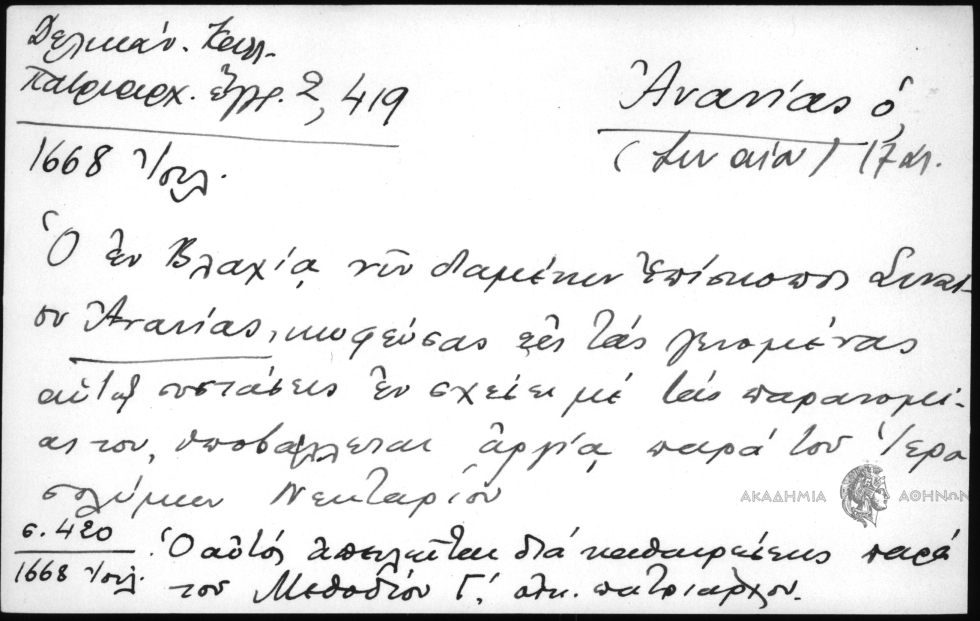 Δελικάν. Καλλ.
Πατριαρχ. ἔγγρ. 2, 419
Ἀνανίας ὁ
1668 Ἰουλ.
(Σιναίου) 17 αι.
Ὁ ἐν Βλαχίᾳ νῦν διαμένων Ἐπίσκοπος Σιναί-
ου Ἀνανίας, κωφεύσας εἰς τάς γενομένας
αὐτῷ συστάσεις ἐν σχέσει μέ τάς παρανομί-
ας του, ὑποβάλλεται ἀργίᾳ παρά του Ἱερο
σολύμων Νεκταρίου
ΑΚΑΔΗΜΙΑ ΑΘΗΝΩΝ
σ. 420
1668 Ἰουλ. Ὁ αὐτός ἀπειλεῖται διά καθαιρέσεως παρά
του Μεθοδίου Γ΄. οἰκ. πατριάρχου.